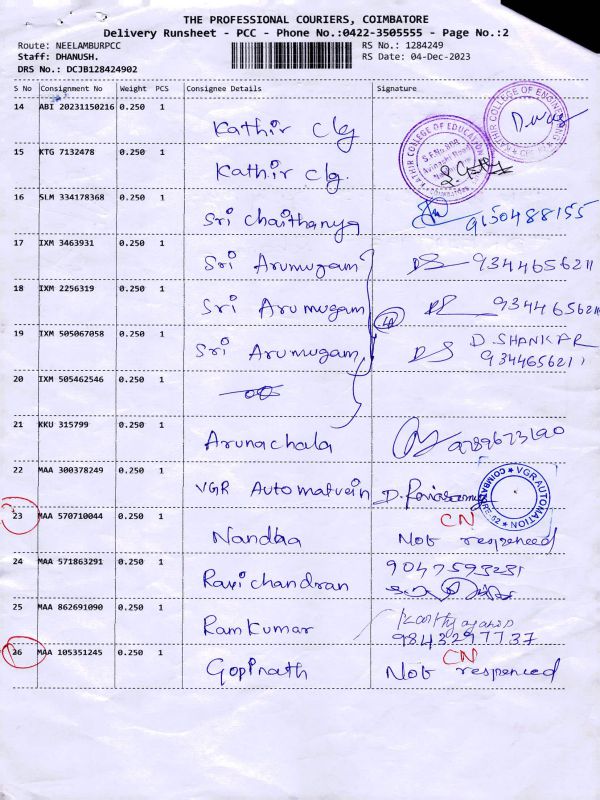 THE PROFESSIONAL COURIERS, COIMBATORE
Delivery Runsheet - PCC - Phone No.:0422-3505555 - Page No.:2
Route: NEELAMBURPCC RS No.: 1284249
Staff: DHANUSH. RS Date: 04-Dec-2023
DRS No.: DCJB128424902
S No Consignment No Weight PCS Consignee Details Signature
14 ABI 20231150216 0.250 1 Kathir Clg
KATHIR COLLEGE OF ENGINEERING
15 KTG 7132478 0.250 1 Kathir Clg.
KATHIR COLLEGE OF EDUCATION
Avinashi Road
16 SLM 334178368 0.250 1 Sri Chaithanya 9150488155
17 IXM 3463931 0.250 1 Sri Arumugam DS 9344656211
18 IXM 2256319 0.250 1 Sri Arumugam DS 9344656211
19 IXM 505067058 0.250 1 Sri Arumugam DS D. SHANKAR
9344656211
20 IXM 505462546 0.250 1
21 KKU 315799 0.250 1 Arunachala
22 MAA 300378249 0.250 1 VGR Automatvein
VGR AUTOMATION COIMBATORE-62
23 MAA 570710044 0.250 1 Nandha CN
Not respenced
24 MAA 571863291 0.250 1 Ravichandran 9047593231
25 MAA 862691090 0.250 1 Ramkumar
9843297737
26 MAA 105351245 0.250 1 Gopinath CN
Not respenced